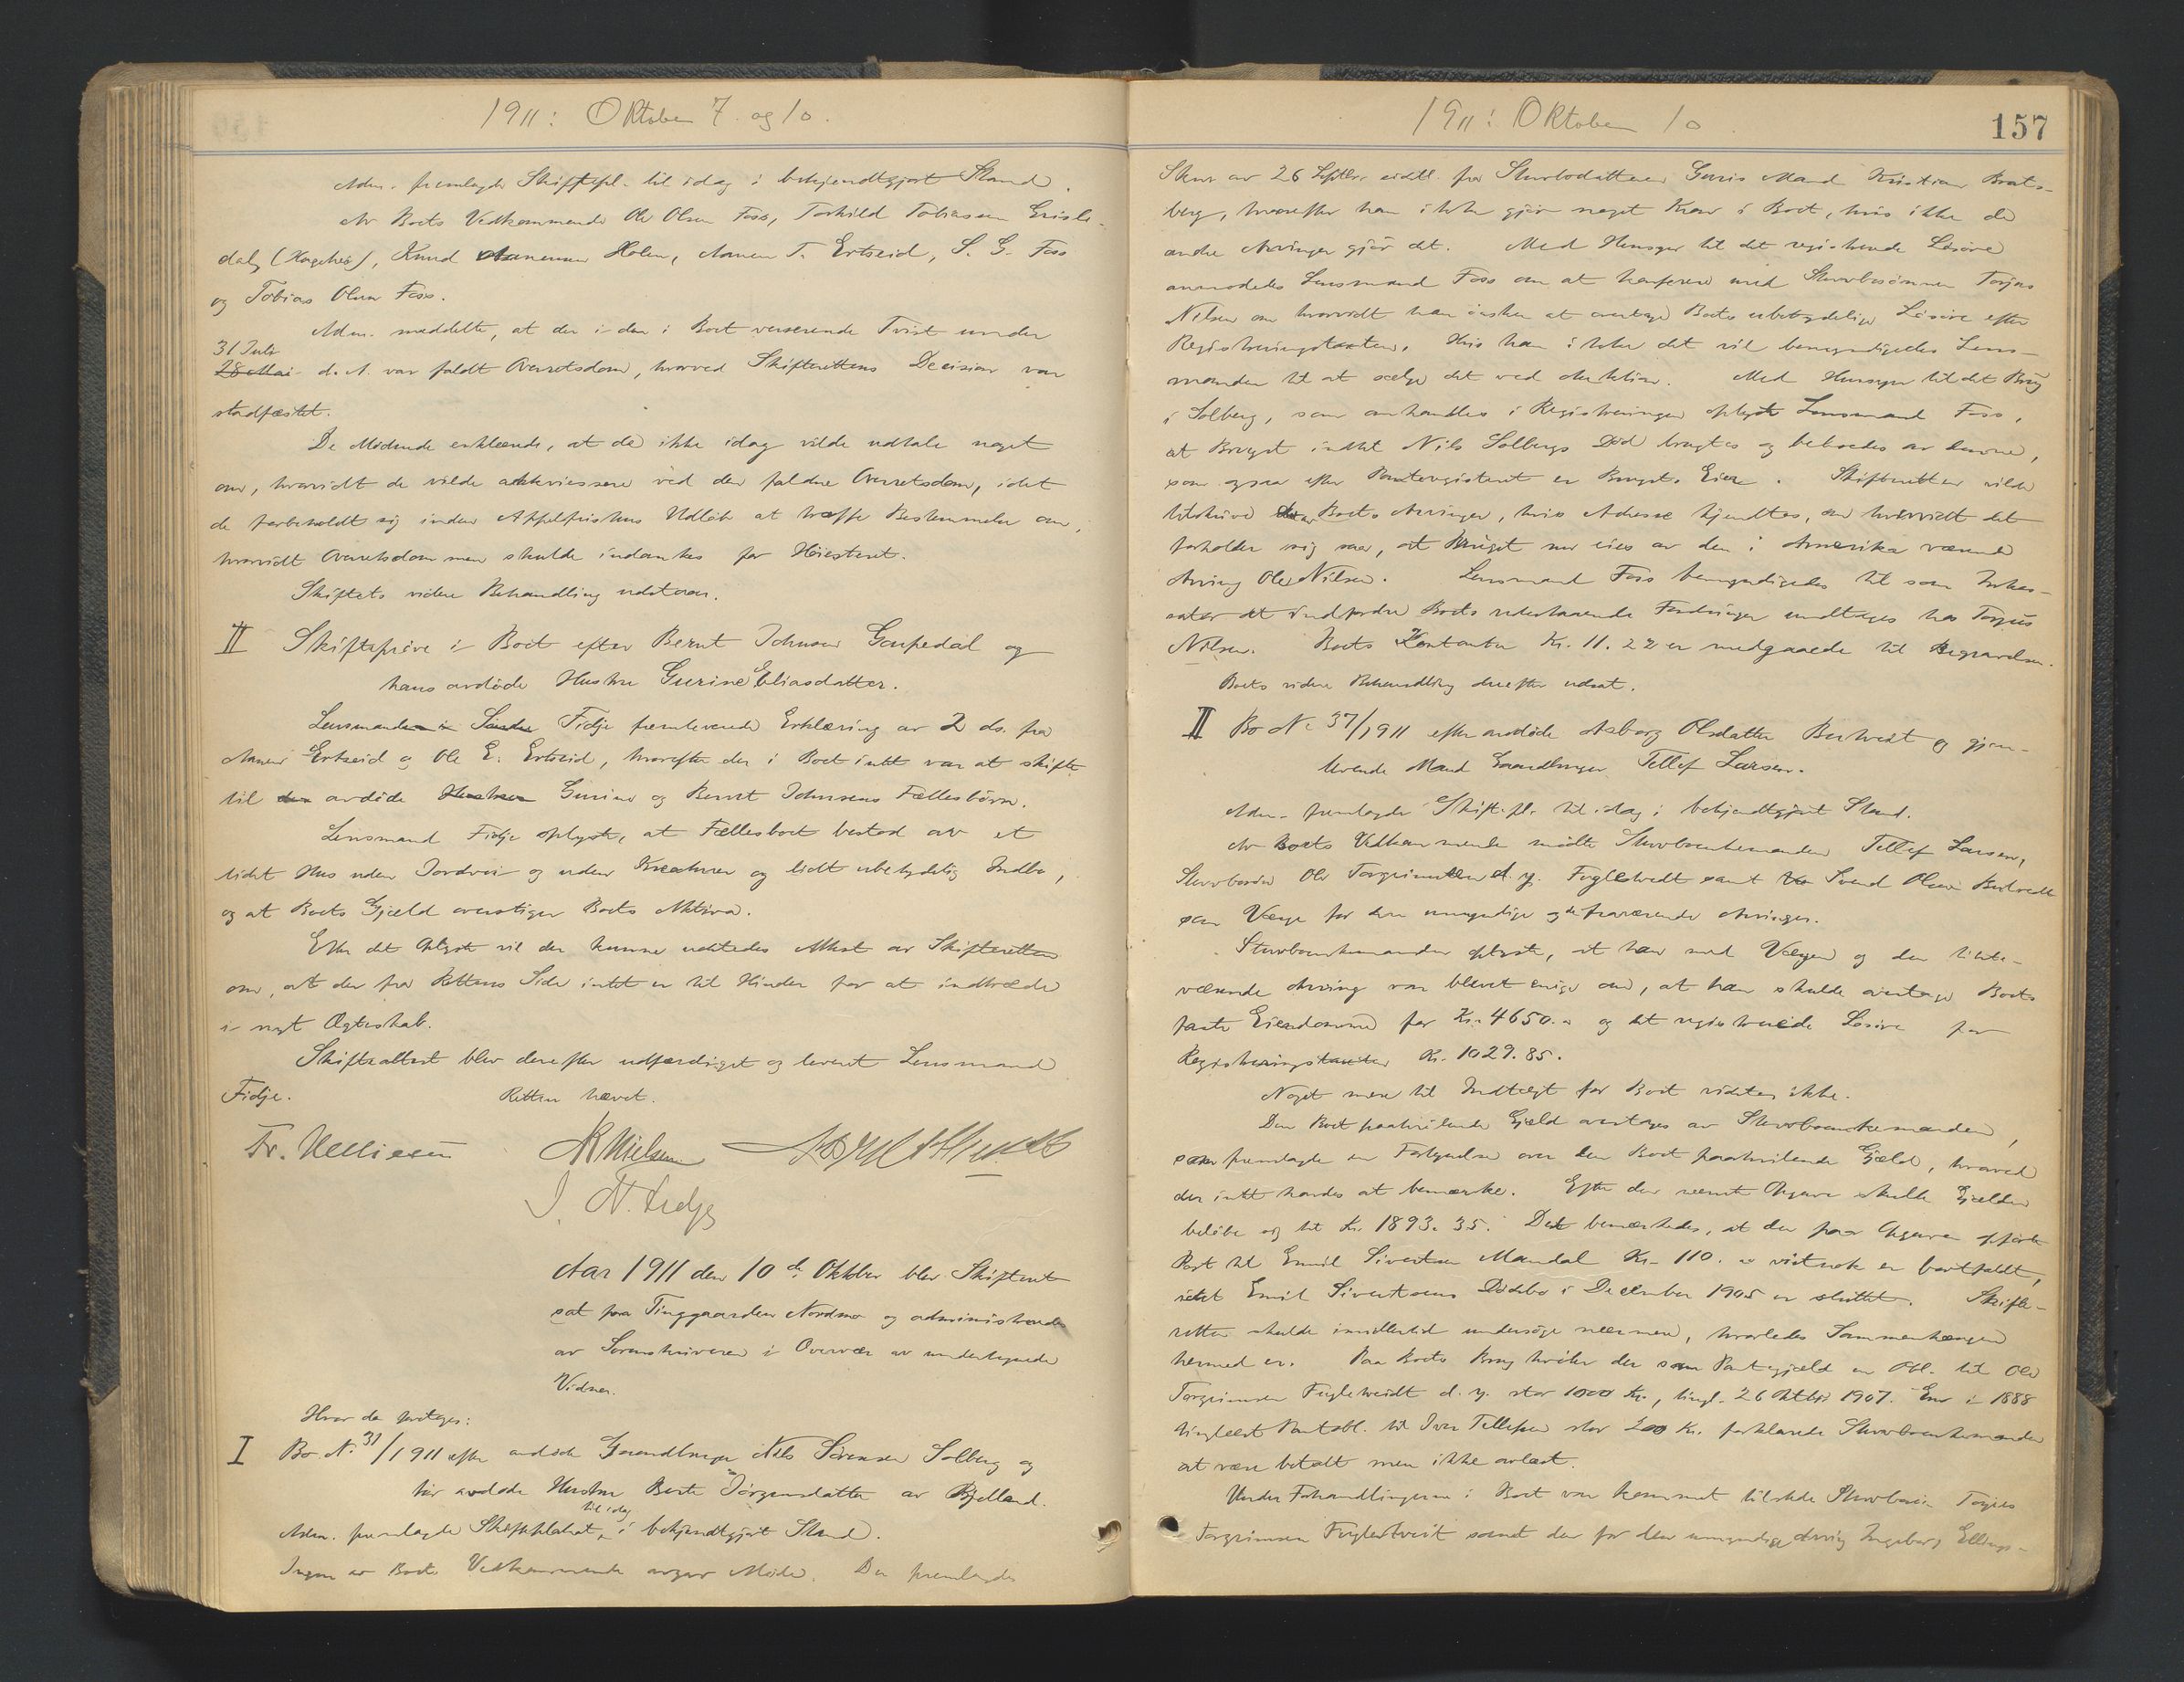 1911: Oktober 7. og 10.
Adm. fremlagde Skiftepl. til idag i bekjendtgjort Stand.
Av Boets Vedkommende Ole Olsen Foss, Torkild Tobiassen Grisle-
dal, Knud Aanensen Holen, Aanen T. Ertseid, S. G. Foss
og Tobias Olsen Foss.
Adm. meddelte, at der i den i Boet verserende Tvist under
31 Juli
28 Mai d. A. var faldt Overretsdom, hvorved Skifterettens Decision var
stadfæstet.
De Mødende erklærede, at de ikke idag vilde udtale noget
om, hvorvidt de vilde akkviessere ved den faldne Overretsdom, idet
de forbeholdt sig inden Appelfristens Udløb at træffe Bestemmelse om,
hvorvidt Overretsdommen skulde indankes for Høiesteret.
Skiftets videre Behandling udstaar.
II Skifteprøve i Boet efter Bernt Johnsen Gaupedal og
hans avdøde Hustru Gurine Eliasdatter.
Lensmanden i Søndre Fidje fremleverede Erklæring av 2 ds. fra
Aanen Ertseid og Ole E. Ertseid, hvorefter der i Boet intet var at skifte
til den avdøde Hustru Gurine og Bernt Johnsens Fællesbørn.
Lensmand Fidje oplyste, at Fællesboet bestod av et
lidet Hus uden Jordvei og uden Kreaturer og lidt ubetydelig Indbo,
og at Boets Gjæld overstiger Boets Aktiva.
Efter det Oplyste vil der kunne udstedes Attest av Skifteretten
om, at der fra Rettens Side intet er til Hinder for at indtræde
i nyt Ægteskab.
Skifteattest blev derefter udfærdiget og leveret Lensmand
Fidje. Retten hævet.
Fr. Melliesen N Nielsen
J. N. Fidje
Aar 1911 den 10de Oktober blev Skifteret
sat paa Tinggaarden Nordmo og administreredes
av Sorenskriveren i Overvær av undertegnede
Vidner.
Hvor da foretages:
I Bo No. 31/1911 efter avdøde Gaardbruger Nils Sørensen Solberg og
før avdøde Hustru Berte Jørgensdatter av Bjelland.
til idag
Adm. fremlagde Skifteplakat, i bekjendtgjort Stand.
Ingen av Boets Vedkommende avgav Møde. Der fremlagdes
1911: Oktober 10
157
Skriv av 26 Septbr. sidstl. fra Stervbodatteren Guris Mand Kristian Brats-
berg, hvorefter han ikke gjør noget Krav i Boet, hvis ikke de
andre Arvinger gjør det. Med Hensyn til det registrerede Løsøre
anmodedes Lensmand Foss om at konferere med Stervbosønnen Torjus
Nilsen om hvorvidt han ønsker at overtage Boets ubetydelige Løsøre efter
Registreringstaxten. Hvis han ikke det vil bemyndigedes Lens-
manden til at sælge det ved Auktion. Med Hensyn til det Brug
i Solberg, som omhandles i Registreringen oplyste Lensmand Foss,
at Bruget indtil Nils Solbergs Død brugtes og beboedes av denne,
som ogsaa efter Panteregisteret er Brugets Eier. Skifteretten vilde
tilskrive Boets Arvinger, hvis Adresse kjendtes, om hvorvidt det
forholder sig saa, at Bruget nu eies av den i Amerika værende
Arving Ole Nilsen. Lensmand Foss bemyndigedes til som Inkas-
sator at indfordre Boets udestaaende Fordringer undtagen hos Torjus
Nilsen. Boets Kontanter Kr. 11.22 er medgaaede til Begravelsen.
Boets videre Behandling derefter udsat.
II Bo No 37/1911 efter avdøde Asborg Olsdatter Buhvedt og gjen-
levende Mand Gaardbruger Tellef Larsen.
Adm. fremlagde Skift.pl. til idag i bekjendtgjort Stand.
Av Boets Vedkommende mødte Stervboenkemanden Tellef Larsen,
Stervbosøn Ole Torgrimsen d. y. Fuglestvedt samt Svend Olsen
som Værge for den umyndige og de fraværende Arvinger.
Stervboenkemanden oplyste, at han med Værgen og den tilste-
værende Arving var blevet enige om, at han skulde overtage Boets
faste Eiendomme for Kr. 4650.- og det registrerede Løsøre for
Registreringstaxten Kr. 1029.85.
Noget mere til Indtægt for Boet vidstes ikke.
Den Boet paahvilende Gjæld overtages av Stervboenkemanden,
som fremlagde en Fortegnelse over den Boet paahvilende Gjæld, hvorved
der intet havdes at bemærke. Efter den nævnte Opgave skulde Gjælden
beløbe sig til Kr. 1893.35. Det bemærkedes, at den paa Opgaven opførte
Post til Emil Sivertsen Mandal Kr. 110.- vistnok er bortfaldt,
idet Emil Sivertsens Dødsbo i December 1905 er sluttet. Skifte-
retten skulde imidlertid undersøge nærmere, hvorledes Sammenhængen
hermed er. Paa Boets Brug hviler der som Pantegjæld en Obl. til Ole
Torgrimsen Fuglestvedt d. y. stor 1000 Kr., tingl. 26 Oktbr. 1907. En i 1888
tinglæst Panteobl. til Iver Tellefsen stor 200 Kr. forklarede Stervboenkemanden
at være betalt men ikke avlæst.
Under Forhandlingerne i Boet var kommet tilstede Stervbosøn Torjus
Torgrimsen Fuglestveit samt den for den umyndige Arving Ingeborg Ellings-